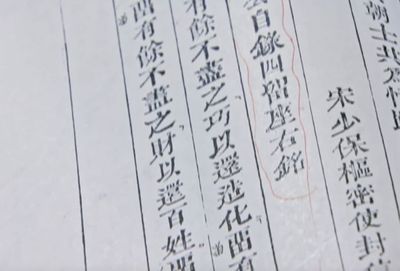 朝士
宋少保樞密使封
自錄四畱座右銘
有餘不盡之巧以還造化畱有
畱有餘不盡之財以還百姓畱